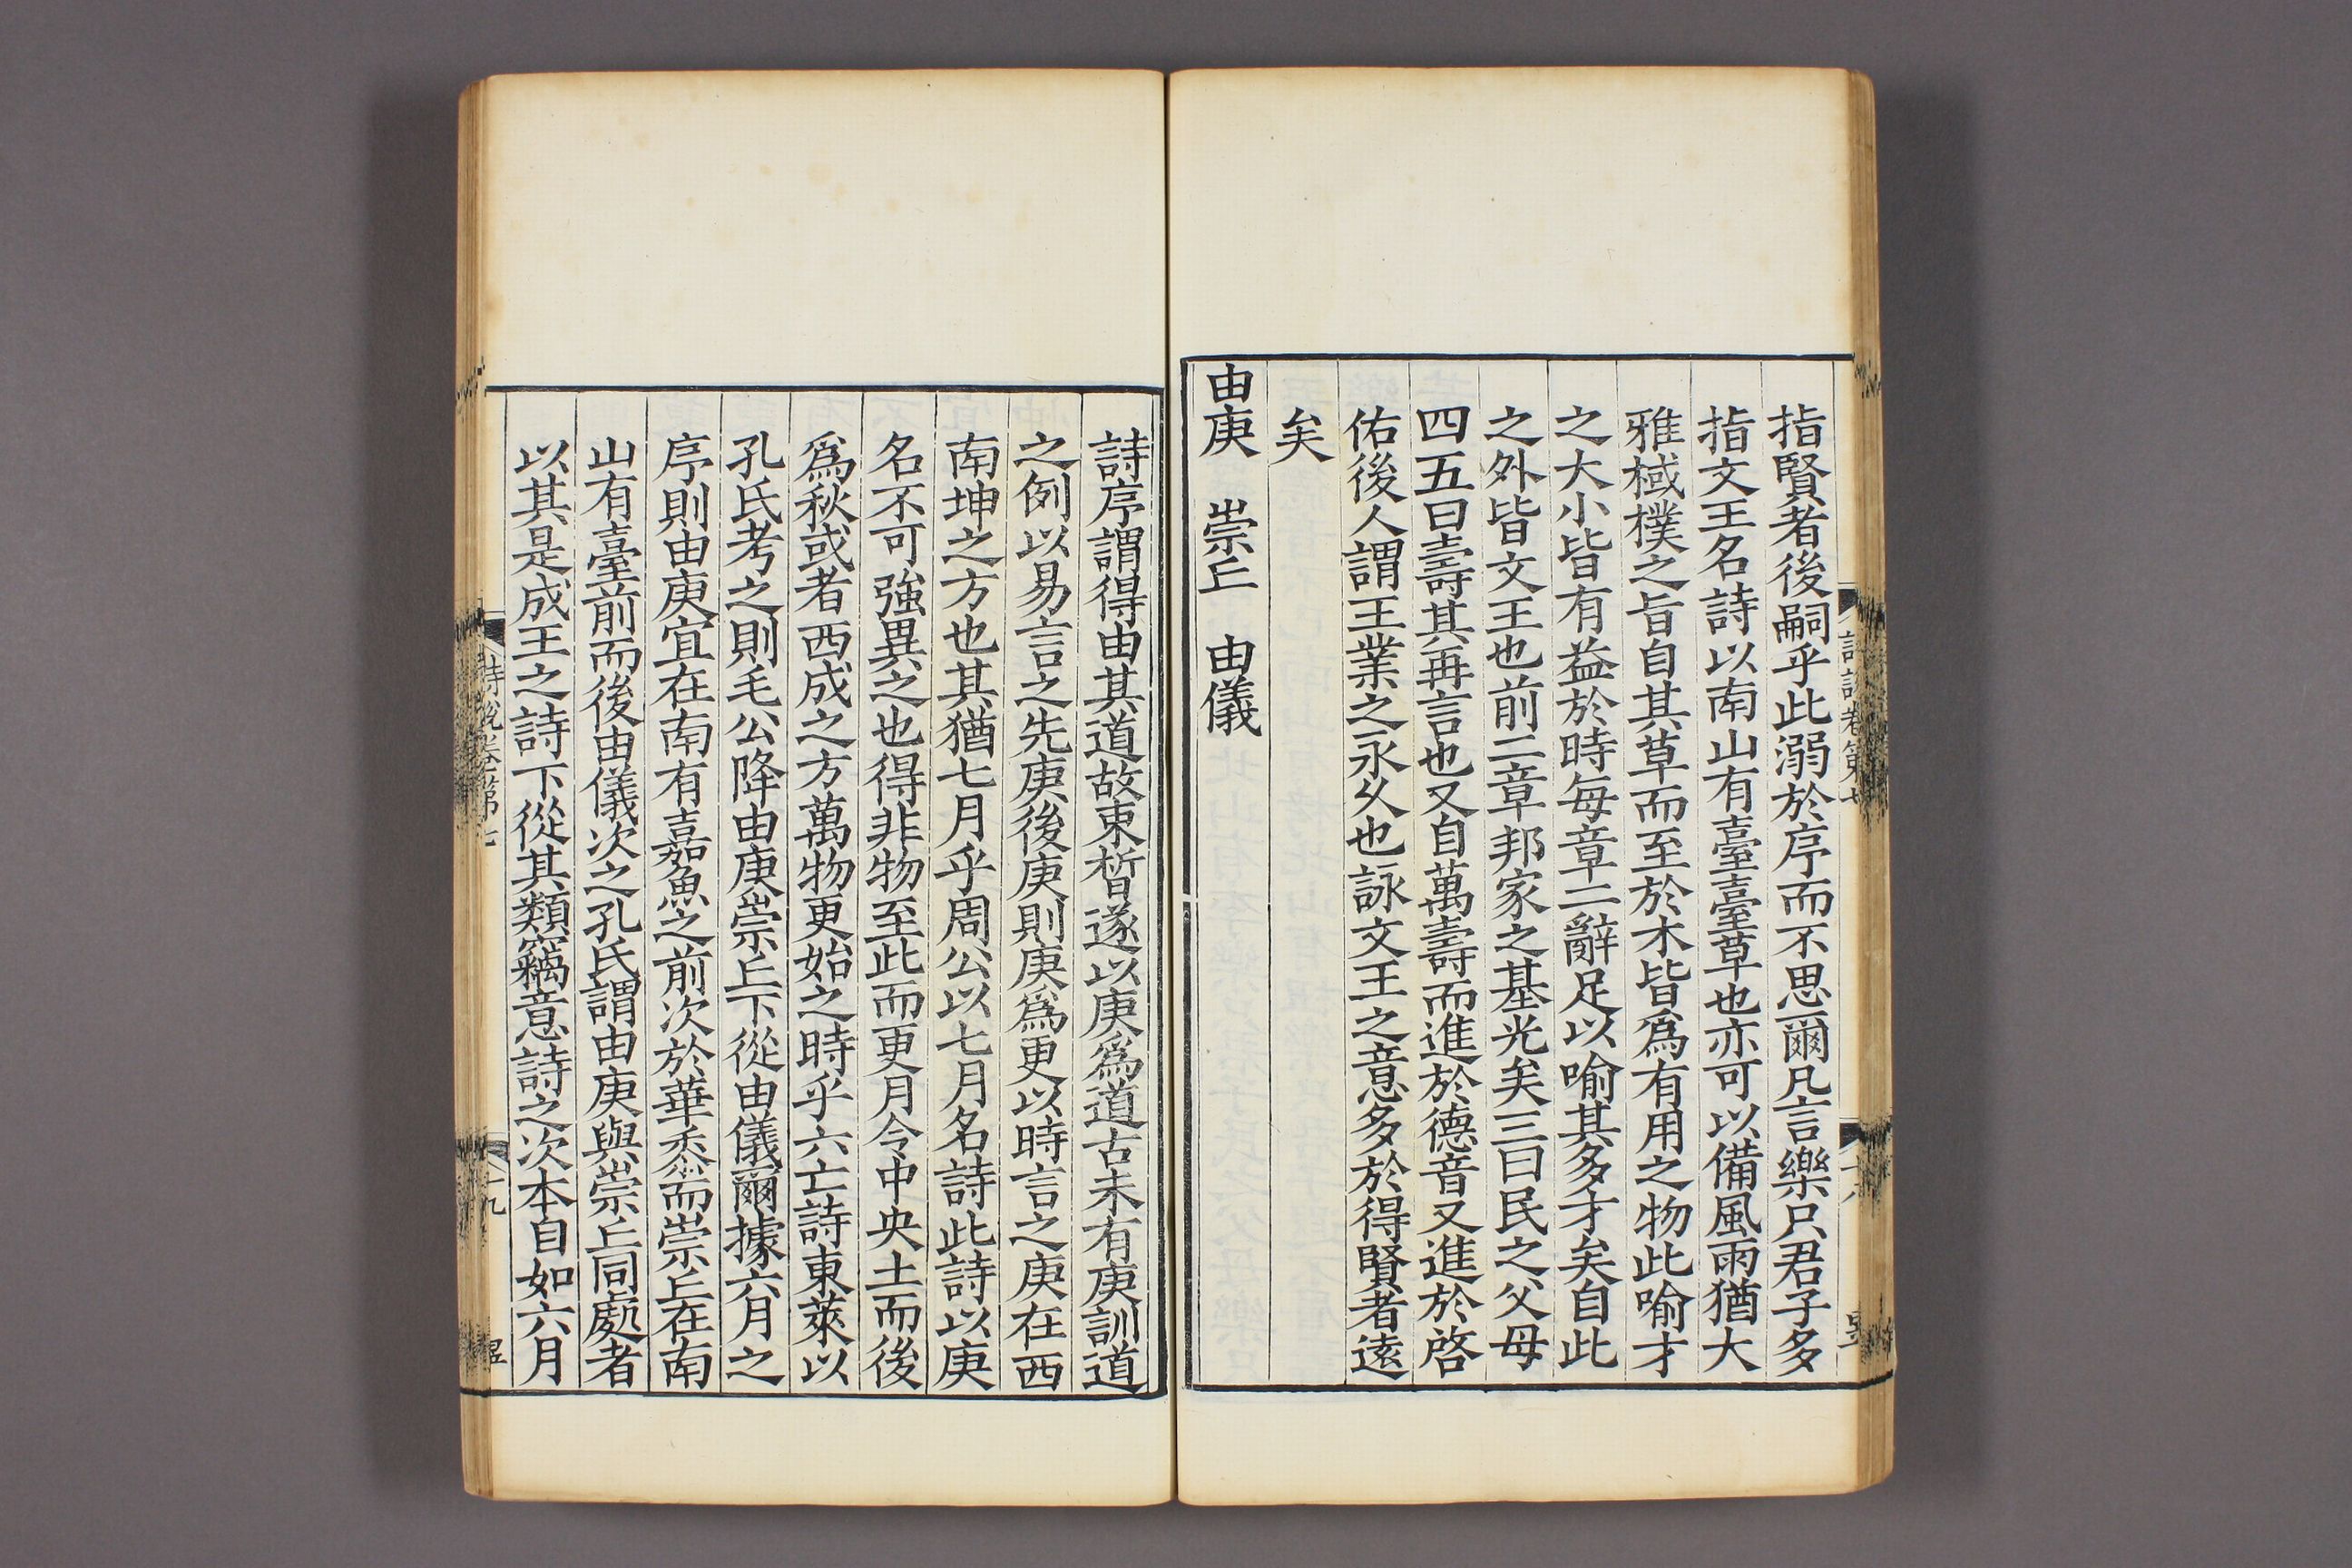 指賢者後嗣乎此溺於序而不思爾凡言樂只君子多
指文王名詩以南山有臺臺草也亦可以備風雨猶大
雅棫樸之旨自其草而至於木皆爲有用之物此喻才
之大小皆有益於時每章二辭足以喻其多才矣自此
之外皆文王也前二章邦家之基光矣三曰民之父母
四五曰壽其再言也又自萬壽而進於德音又進於啓
佑後人謂王業之永久也詠文王之意多於得賢者遠
矣
由庚　崇丘　由儀
詩序謂得由其道故束晳遂以庚爲道古未有庚訓道
之例以易言之先庚後庚則庚爲更以時言之庚在西
南坤之方也其猶七月乎周公以七月名詩此詩以庚
名不可強異之也得非物至此而更月令中央土而後
爲秋或者西成之方萬物更始之時乎六亡詩東萊以
孔氏考之則毛公降由庚崇丘下從由儀爾據六月之
序則由庚宜在南有嘉魚之前次於華黍而崇丘在南
山有臺前而後由儀次之孔氏謂由庚與崇丘同處者
以其是成王之詩下從其類竊意詩之次本自如六月
詩說卷第七
十九